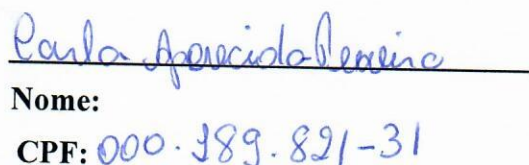 Carla Aparecida Pereira
Nome:
CPF: 000.189.821-31